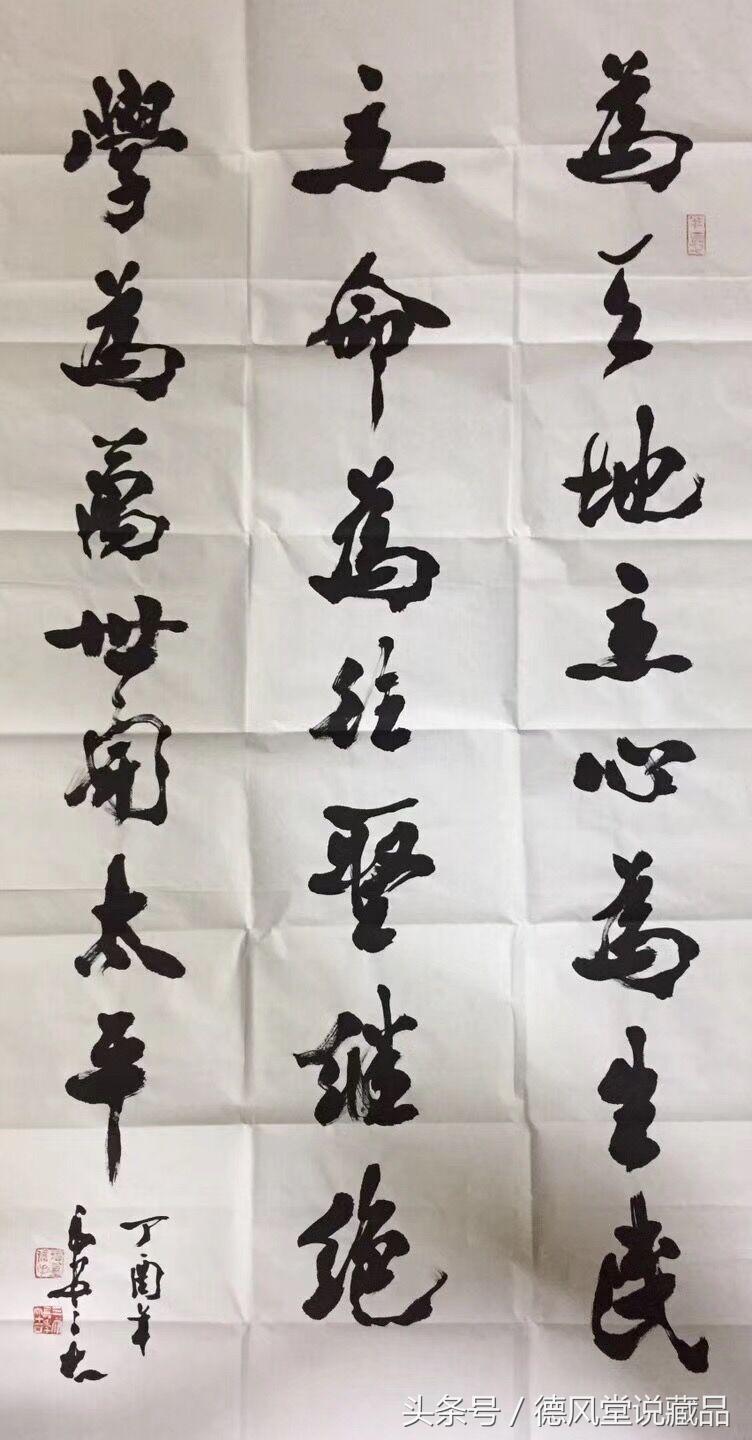 為天地立心為生民
立命為往聖继絶
學為萬世開太平
丁酉年
头条号 / 德风堂说藏品